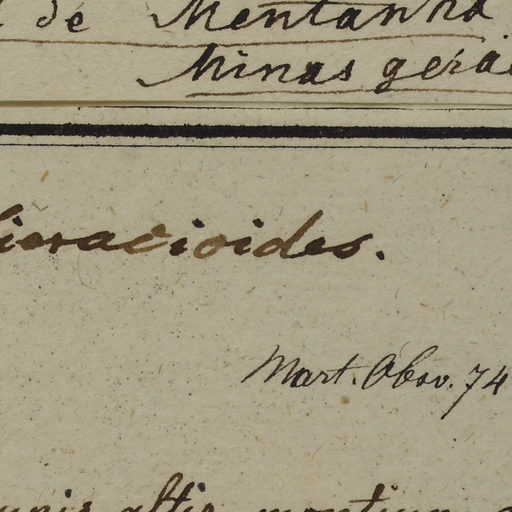 de Mentanha
Minas gerae
ieracioides.
Mart. Obsv. 74
altis montium